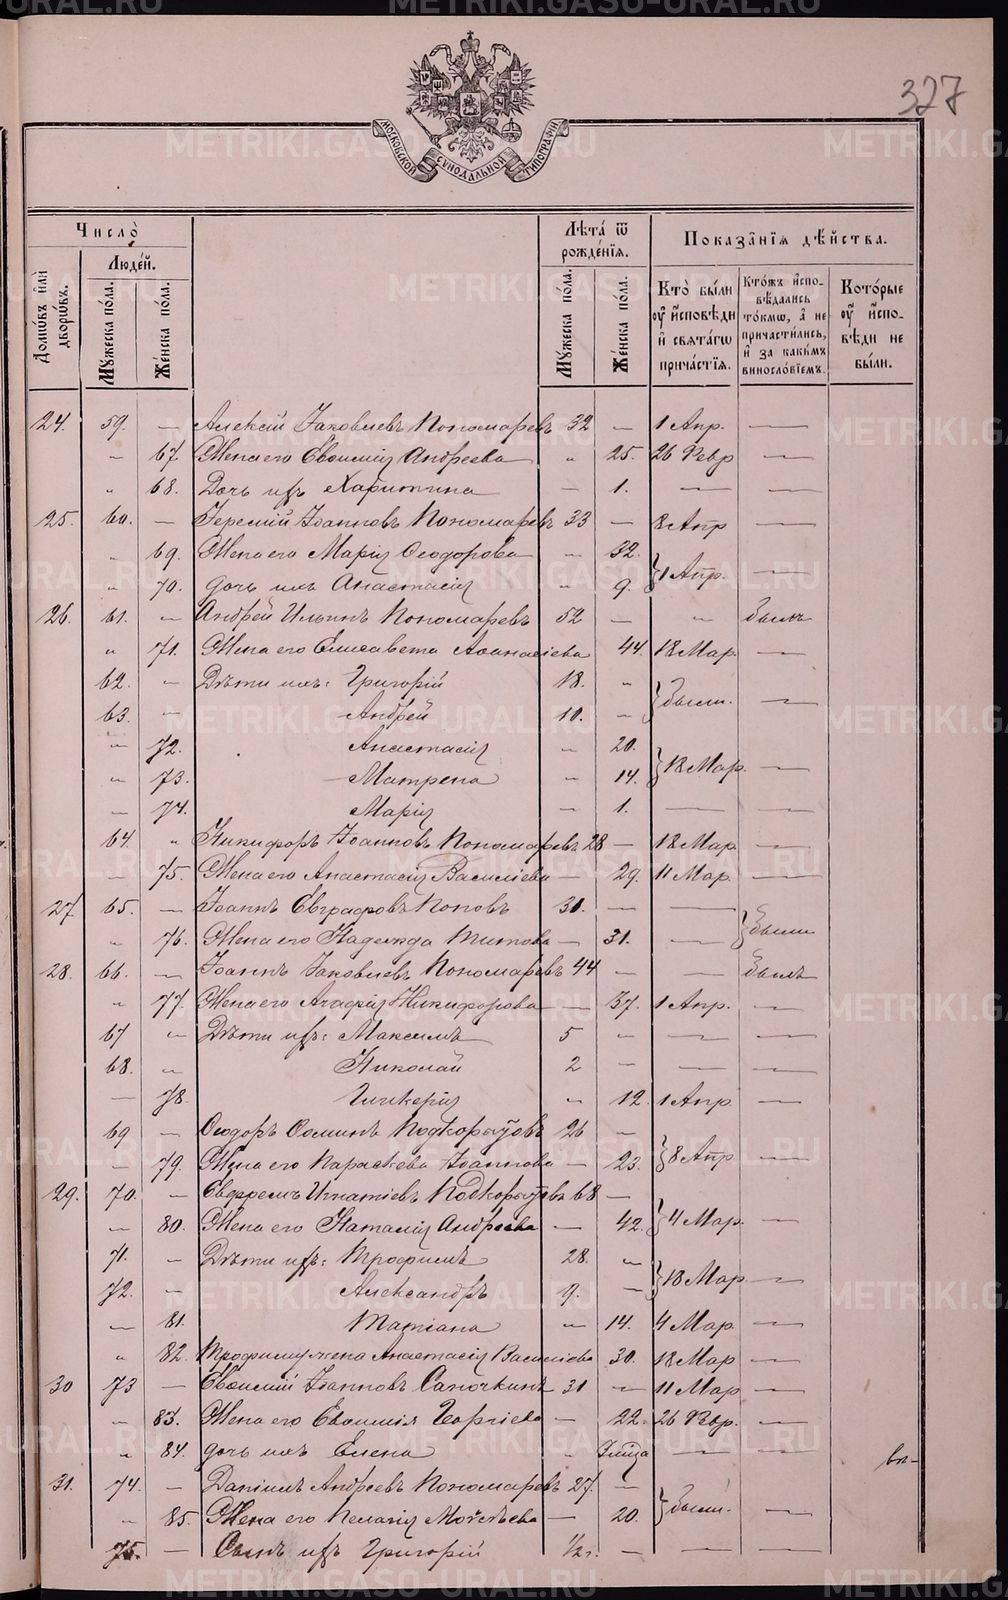 327
МОСКОВСКОЙ СУНОДАЛЬНОЙ ТИПОГРАФІИ
Число̀
Лѣта̀ ѿ рожде́нїѧ.
Показа̂нїѧ дѣ́йства.
Домѡ́въ и҆лѝ дворѡ́въ.
Люде́й.
Мꙋ́жеска по́ла.
Же́нска по́ла.
Мꙋ́жеска по́ла.
Же́нска по́ла.
Кто̀ бы́ли ᲂу҆ и҆сповѣ́ди и҆ свѧта́гѡ прича́стїѧ.
Кто́жъ и҆спо-вѣ́дались то́кмѡ, а҆ не причасти́лись, и҆ за каки́мъ винословїемъ.
Кото́рые ᲂу҆ и҆спо-вѣ́ди не бы́ли.
24. 59. — Алексій Іаковлевъ Пономаревъ 32 — 1 Апр. —
— 67. Жена его Евѳимія Андреева „ 25. 26 Февр —
„ 68. Дочь ихъ Харитина — 1. — —
25. 60. — Іеремій Іоанновъ Пономаревъ 33 — 8 Апр —
„ 69. Жена его Марія Ѳеодорова — 32. } 1 Апр. —
„ 70. дочь ихъ Анастасія „ 9.
26. 61. „ Андрей Ильинъ Пономаревъ 52 — „ былъ
„ 71. Жена его Елисавета Аѳанасіева 44. 18 Мар. —
62. „ Дѣти ихъ: Григорій 18. „ } были. —
63. — Андрей 10. „
„ 72. Анастасія „ 20. } 18 Мар. —
„ 73. Матрена „ 14.
— 74. Марія — 1. — —
64. „ Никифоръ Іоанновъ Пономаревъ 28 — 18 Мар. —
— 75. Жена его Анастасія Васильева — 29. 11 Мар. —
27. 65. — Іоаннъ Евграфовъ Поповъ 30. — — } были
„ 76. Жена его Надежда Титова — 31. —
28. 66. — Іоаннъ Іаковлевъ Пономаревъ 44 — — былъ
„ 77. Жена его Агафія Никифорова — 37. 1 Апр. —
67 „ Дѣти ихъ: Максимъ 5 „ — —
68. „ Николай 2 — — —
— 78. Гликерія „ 12. 1 Апр. —
69 — Ѳеодоръ Ѳоминъ Подкорытовъ 26 — } 8 Апр —
— 79. Жена его Параскева Іоаннова — 23.
29. 70. — Ефремъ Игнатіевъ Подкорытовъ 68 — } 4 Мар. —
„ 80. Жена его Наталія Андреева — 42.
71. — Дѣти ихъ: Трофимъ 28. „ } 18 Мар —
72. — Александръ 9. —
— 81. Татіана „ 14. 4 Мар. —
„ 82. Трофиму жена Анастасія Васильева 30. 18 Мар —
30 73 — Евѳимій Іоанновъ Сапочкинъ 31 „ 11 Мар —
„ 83. Жена его Евѳимія Георгіева — 22. 26 Февр. —
„ 84. дочь ихъ Елена „ — —
31. 74. — Даніилъ Андреевъ Пономаревъ 27. — } были. —
„ 85. Жена его Пелагія Моѵсеева — 20.
75. — Сынъ ихъ Григорій 1/2 г. — — —